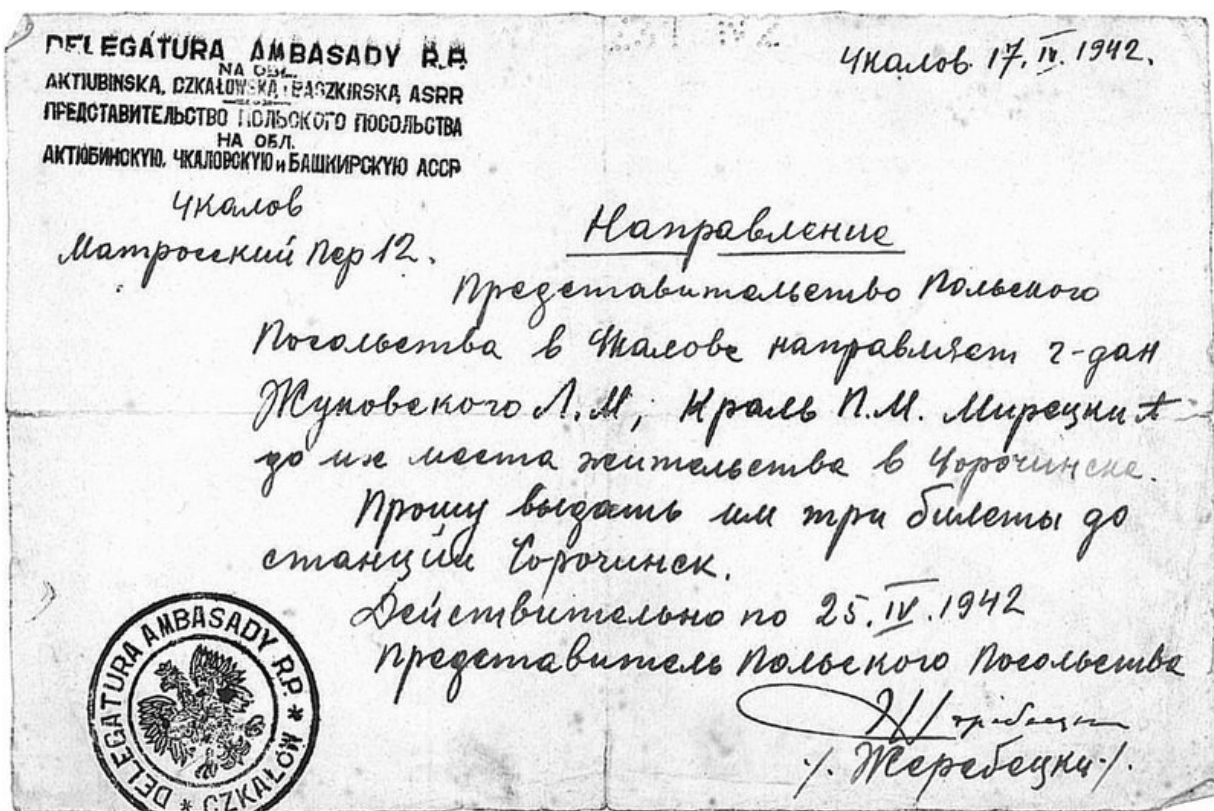 DELEGATURA AMBASADY R.P.
NA OBL.
AKTIUBINSKA, CZKAŁOWSKA i BASZKIRSKA ASRR
ПРЕДСТАВИТЕЛЬСТВО ПОЛЬСКОГО ПОСОЛЬСТВА
НА ОБЛ.
АКТЮБИНСКУЮ, ЧКАЛОВСКУЮ и БАШКИРСКУЮ АССР
Чкалов 17.IV.1942.
Чкалов
Матросский пер 12.
Направление
Представительство Польского
Посольства в Чкалове направляет г-дан
Жуковского Л.М, Краль П.М. Мирецки А
до их места жительства в Сорочинске.
Прошу выдать им три билеты до
станции Сорочинск.
Действительно по 25.IV.1942
Представитель Польского Посольства
/. Жеребецки ./.
DELEGATURA AMBASADY R.P. * W CZKAŁOW *